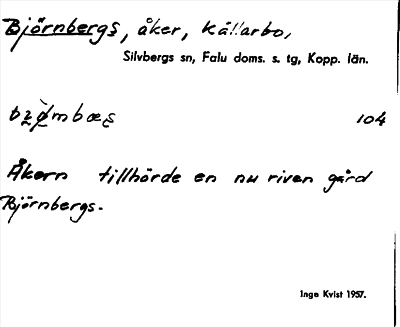 Björnbergs, åker, Källarbo,
Silvbergs sn, Falu doms. s. tg, Kopp. län.
104
Åkern tillhörde en nu riven gård
Björnbergs.
Inge Kvist 1957.